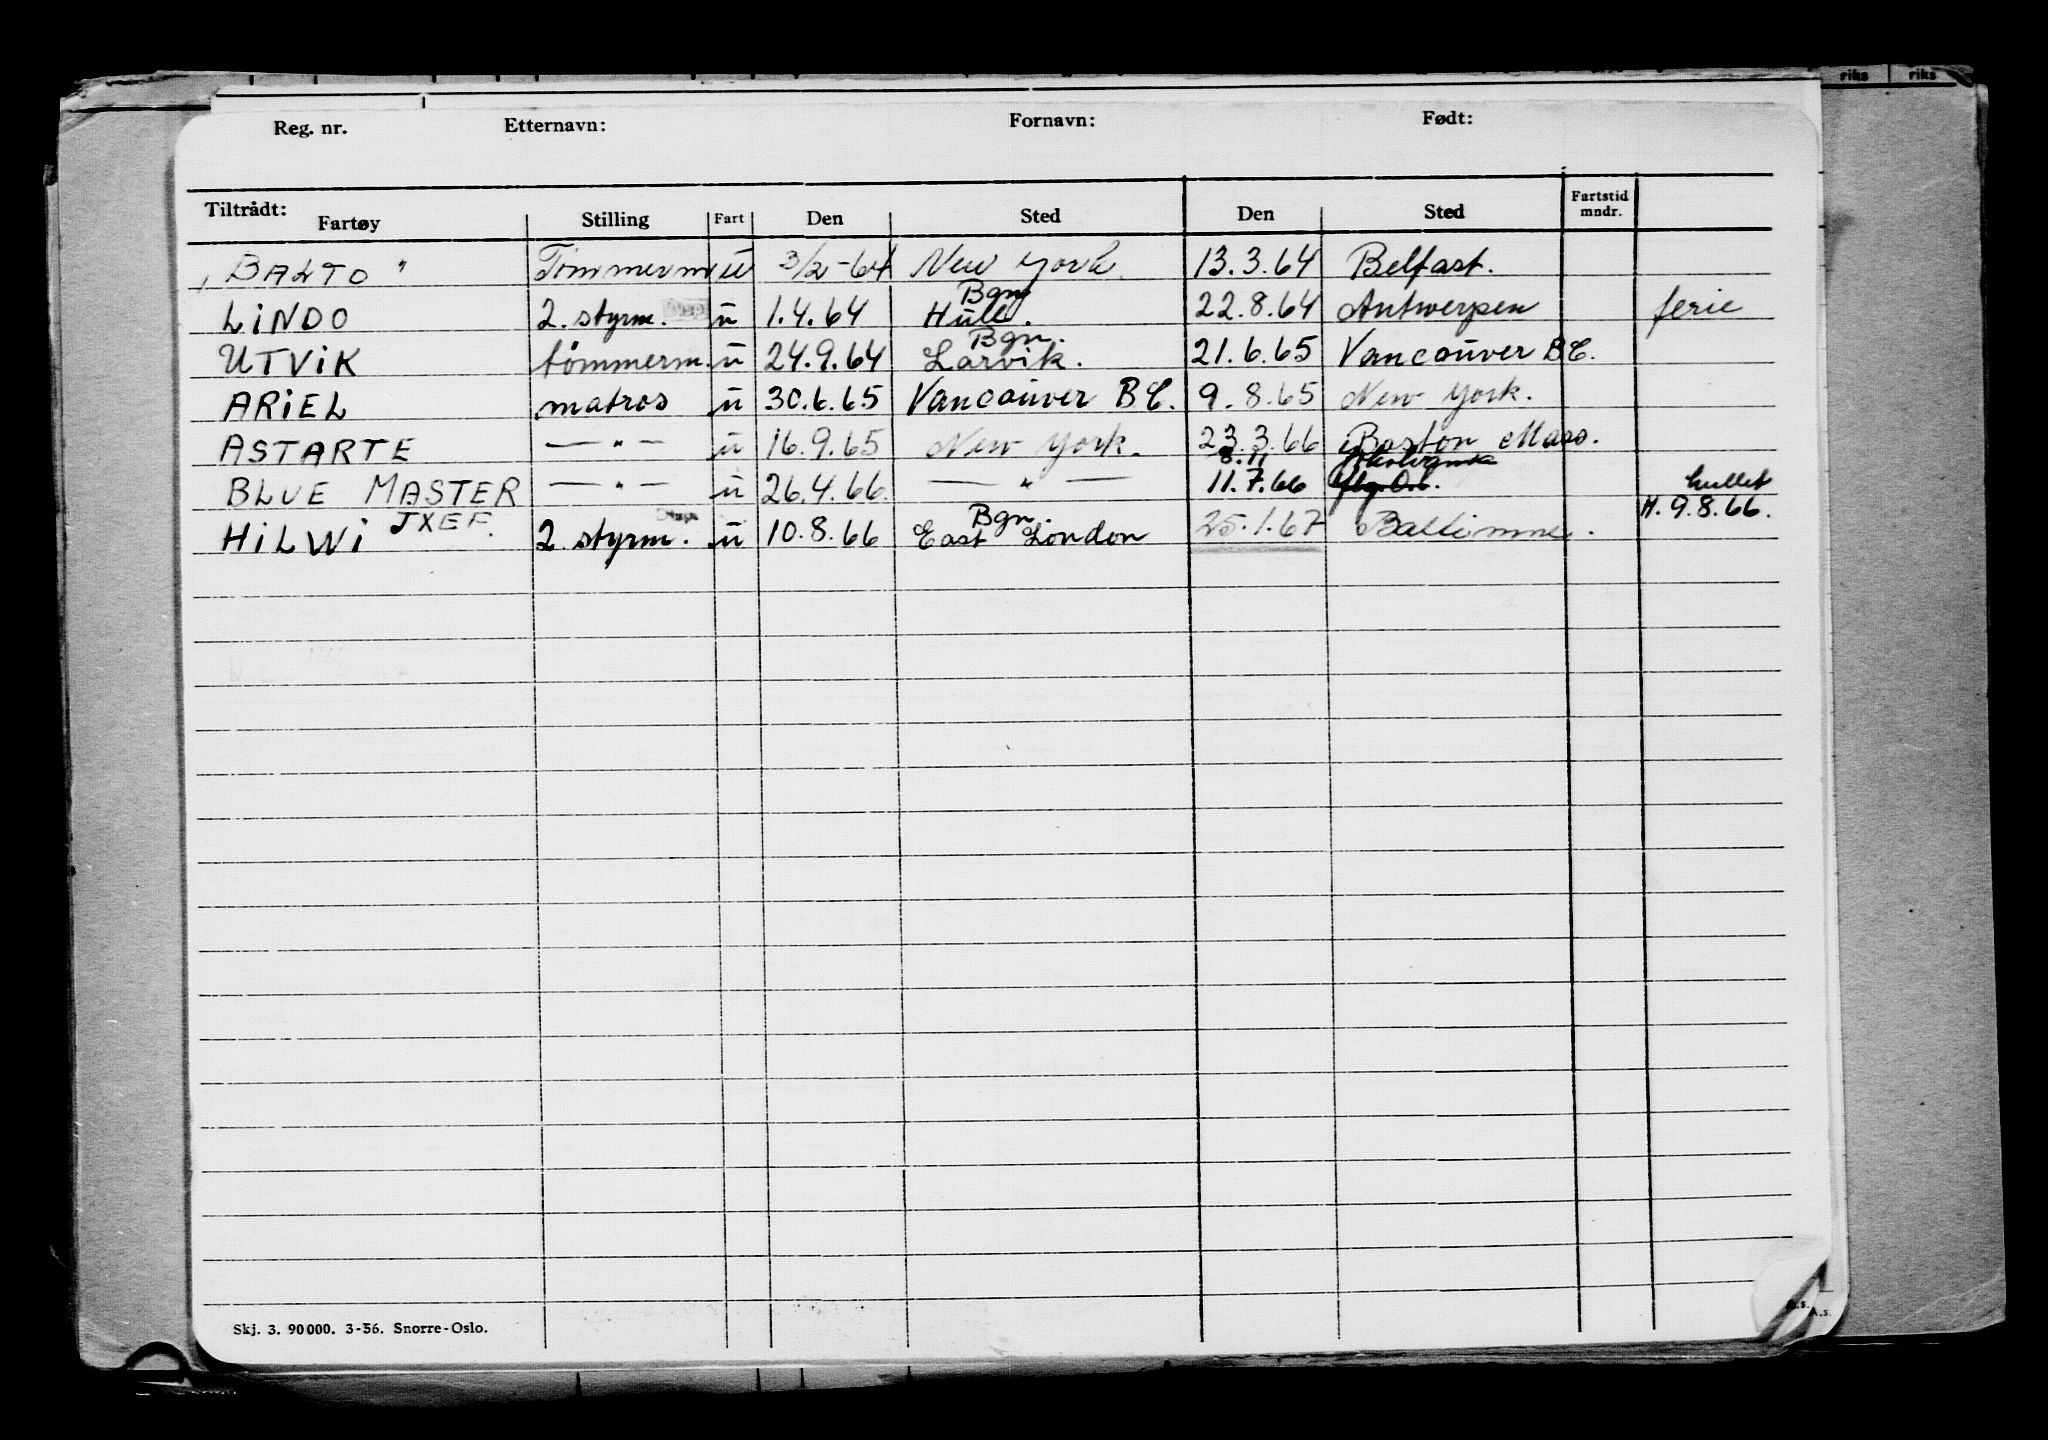 riks riks
Reg. nr. Etternavn: Fornavn: Født:
Tiltrådt: Fartøy Stilling Fart Den Sted Den Sted Fartstid mndr.
"BALTO" Tømmerm ü 3/2-64 New York 13.3.64 Belfast.
Bgn
LINDO 2. styrm. ü 1.4.64 Hull. 22.8.64 Antwerpen ferie
Bgn.
UTVIK tømmerm. ü 24.9.64 Larvik. 21.6.65 Vancouver BC.
ARIEL matros ü 30.6.65 Vancouver BC. 9.8.65 New York.
ASTARTE —"— ü 16.9.65 New York. 23.3.66 Boston Mass.
BLUE MASTER —"— ü 26.4.66 —"— 11.7.66
H. 9.8.66.
JXEF. Bgn.
HILWI 2 styrm. ü 10.8.66 East London 25.1.67 Baltimore.
Skj. 3. 90000. 3-56. Snorre-Oslo.
A.s.